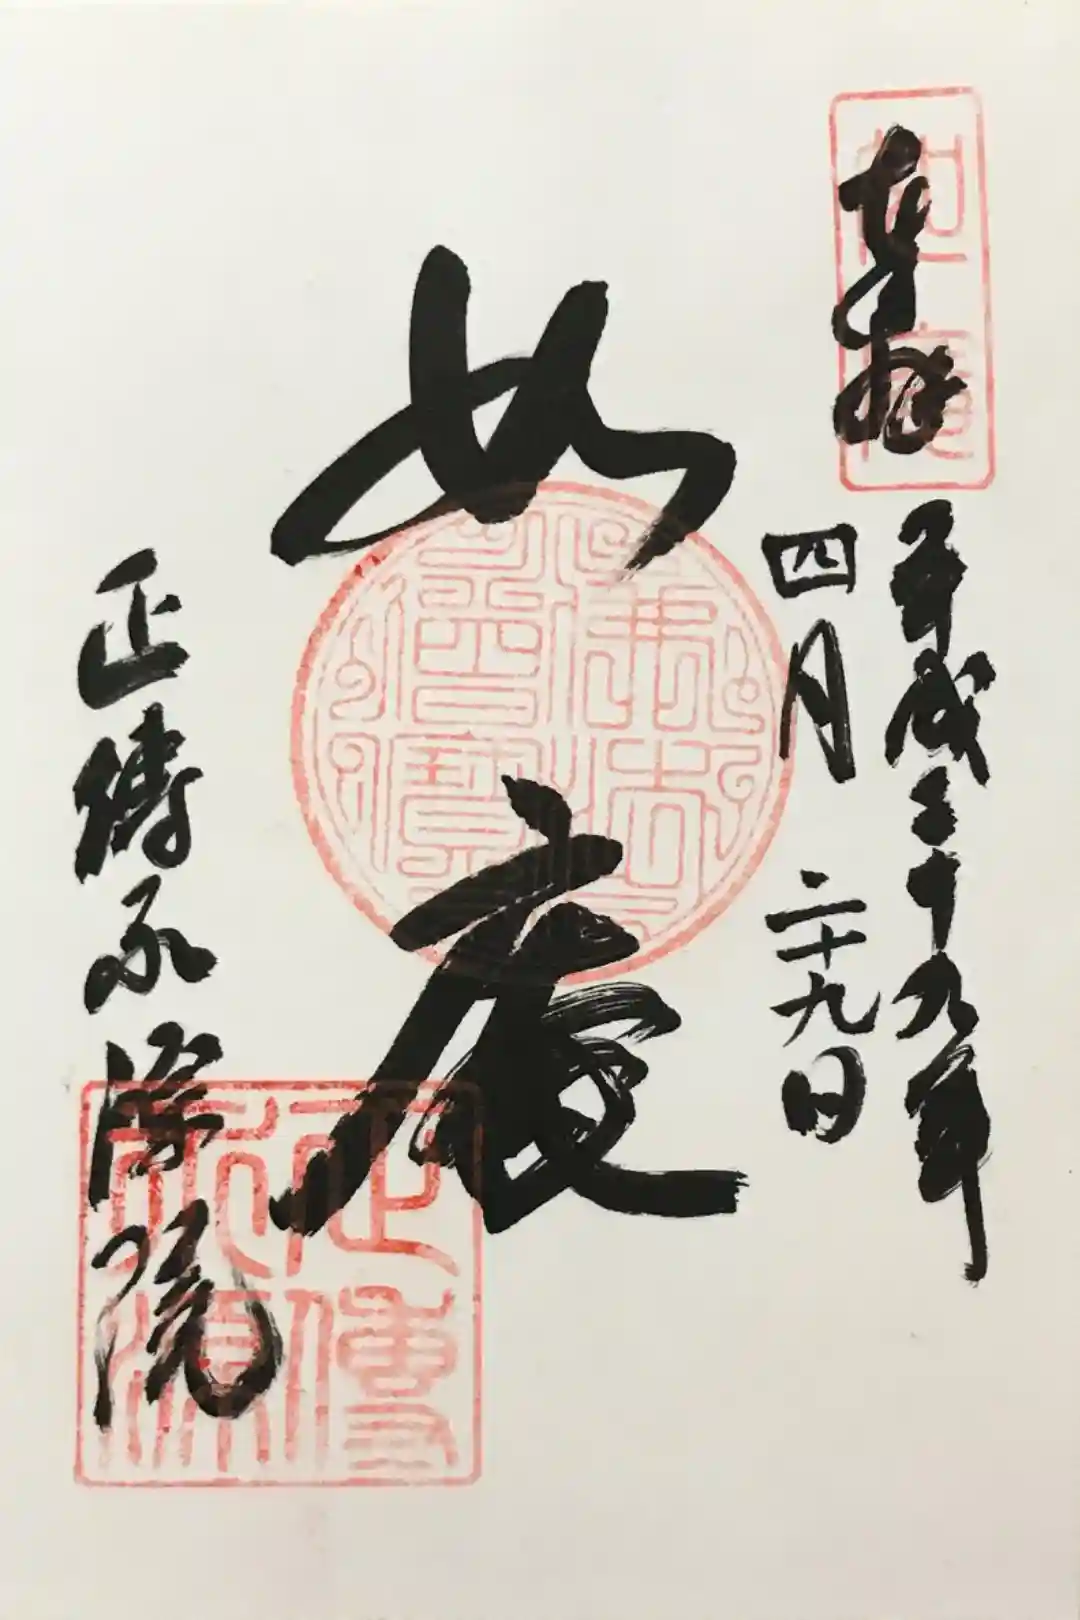 奉拝
平成二十九年
四月二十九日
如庵
正傳永源院
正傳永源